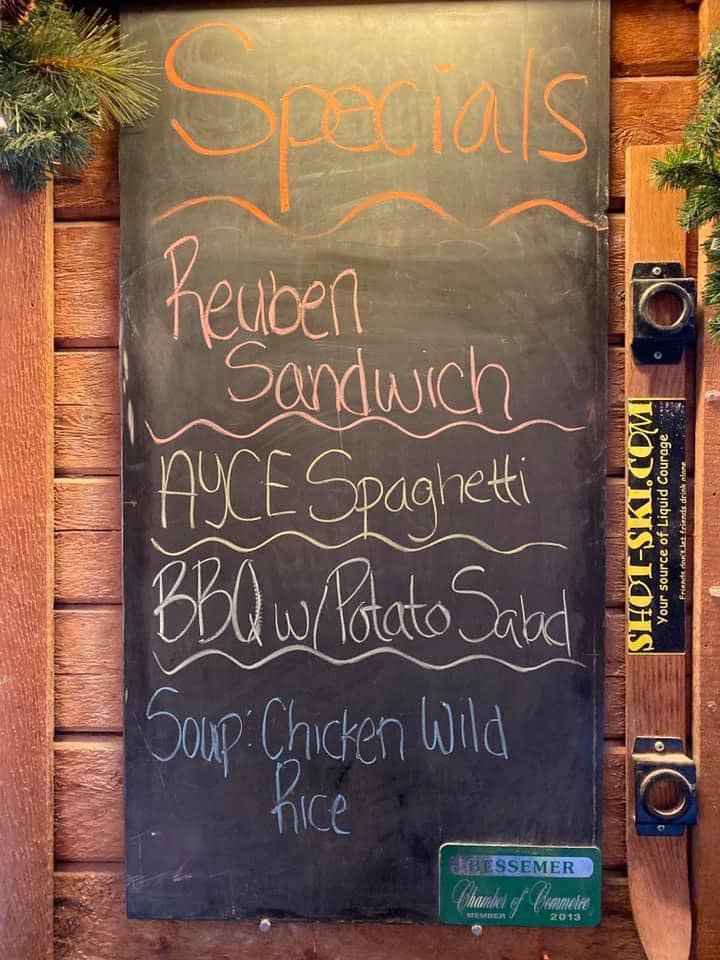 Specials
Reuben
Sandwich
AYCE Spaghetti
BBQ w/ Potato Salad
Soup: Chicken Wild
Rice
SHOT-SKI.COM
Your source of Liquid Courage
Friends don't let friends drink alone
BESSEMER
Chamber of Commerce
MEMBER 2013